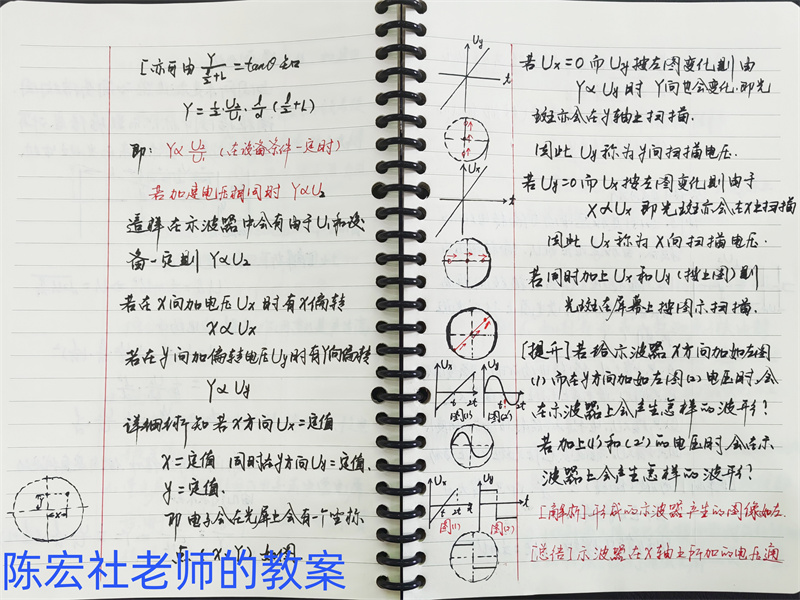 [亦可由 Y/(l/2+L) = tanθ 知
Y = 1/2 · U₂/U₁ · l/d (l/2+L)
即: Y∝ U₂/U₁ (在设备条件一定时)
若加速电压相同时 Y∝U₂
这样在示波器中会有由于U₁和设
备一定则 Y∝U₂
若在X向加电压Ux时有X偏转
X∝Ux
若在Y向加偏转电压Uy时有Y向偏转
Y∝Uy
详细分析知 若X方向Ux=定值
X=定值 同时在Y方向Uy=定值.
y=定值.
即电子会在光屏上会有一个坐标
点 (X,Y) 如图
陈宏社老师的教案
Uy
t
Ux
t
若Ux=0而Uy按左图变化则由
Y∝Uy时 Y向也会变化.即光
斑亦会在Y轴上扫描.
因此Uy称为Y向扫描电压.
若Uy=0而Ux按左图变化则由于
X∝Ux 即光斑亦会在X上扫描
因此 Ux称为X向扫描电压.
若同时加上Ux和Uy(按上图)则
光斑在屏幕上按图示扫描.
[提升]若给示波器X方向加如左图
(1)而在Y方向加如左图(2)电压时.会
在示波器上会产生怎样的波形?
若加上(1')和(2')的电压时会在示
波器上会产生怎样的波形?
[解析]形成的示波器产生的图像如左.
[总结]示波器在X轴上所加的电压通
Ux
Uy
t
2t
图(1)
图(2)
Ux
Uy
t
2t
图(1')
图(2')